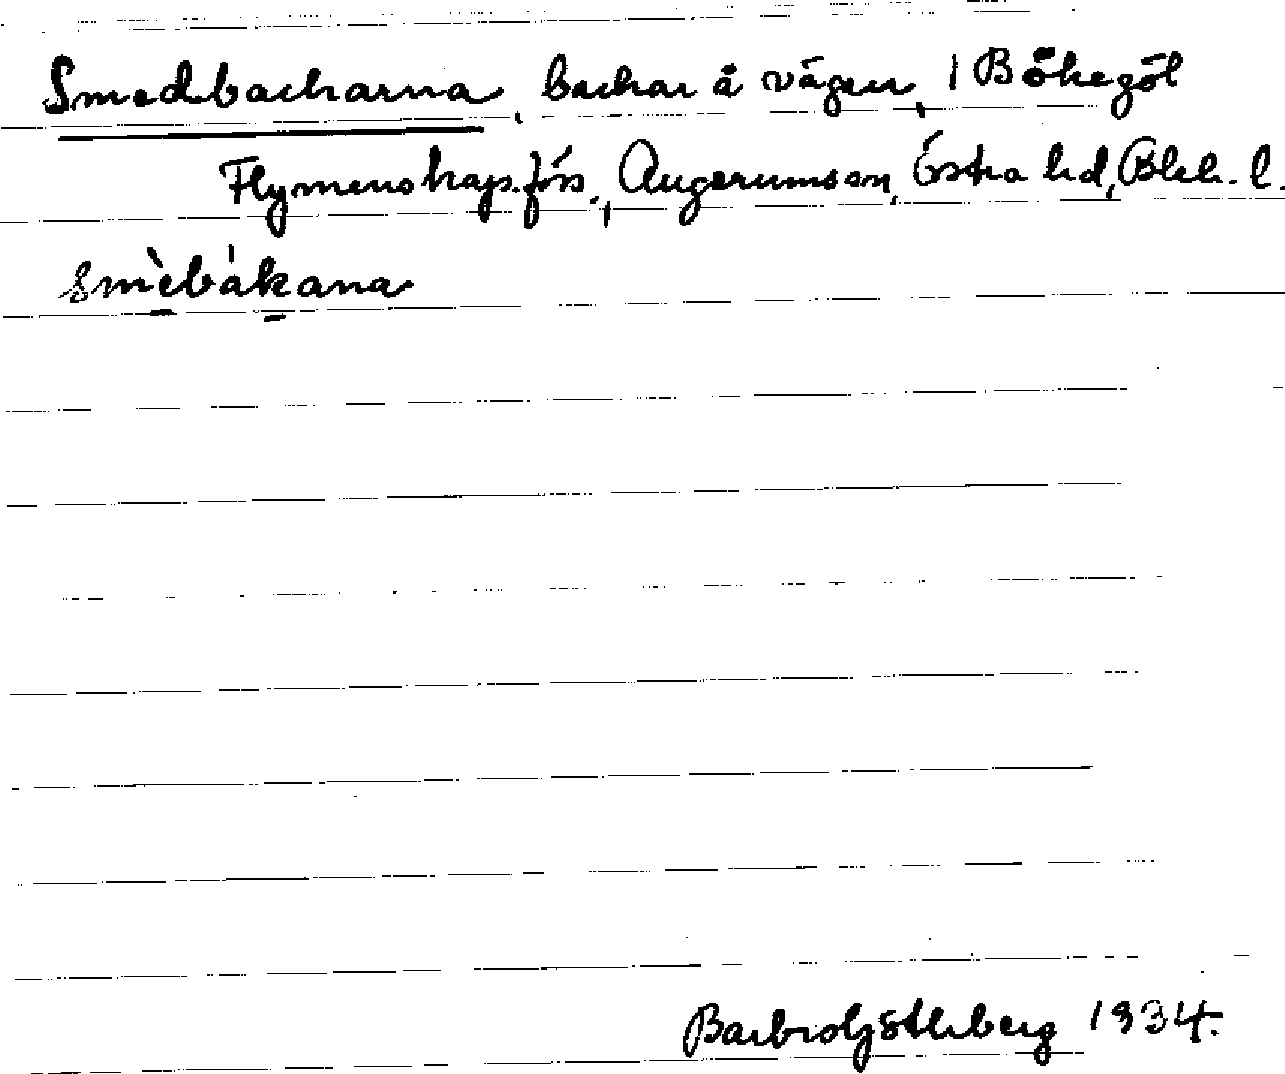 Smedbackarna, backar å vägen, 1 Bökegöl
Flymens kap. förs., Augerums sn, Östra hd, Blek. l.
smèbákana
Barbro Söderberg 1934.